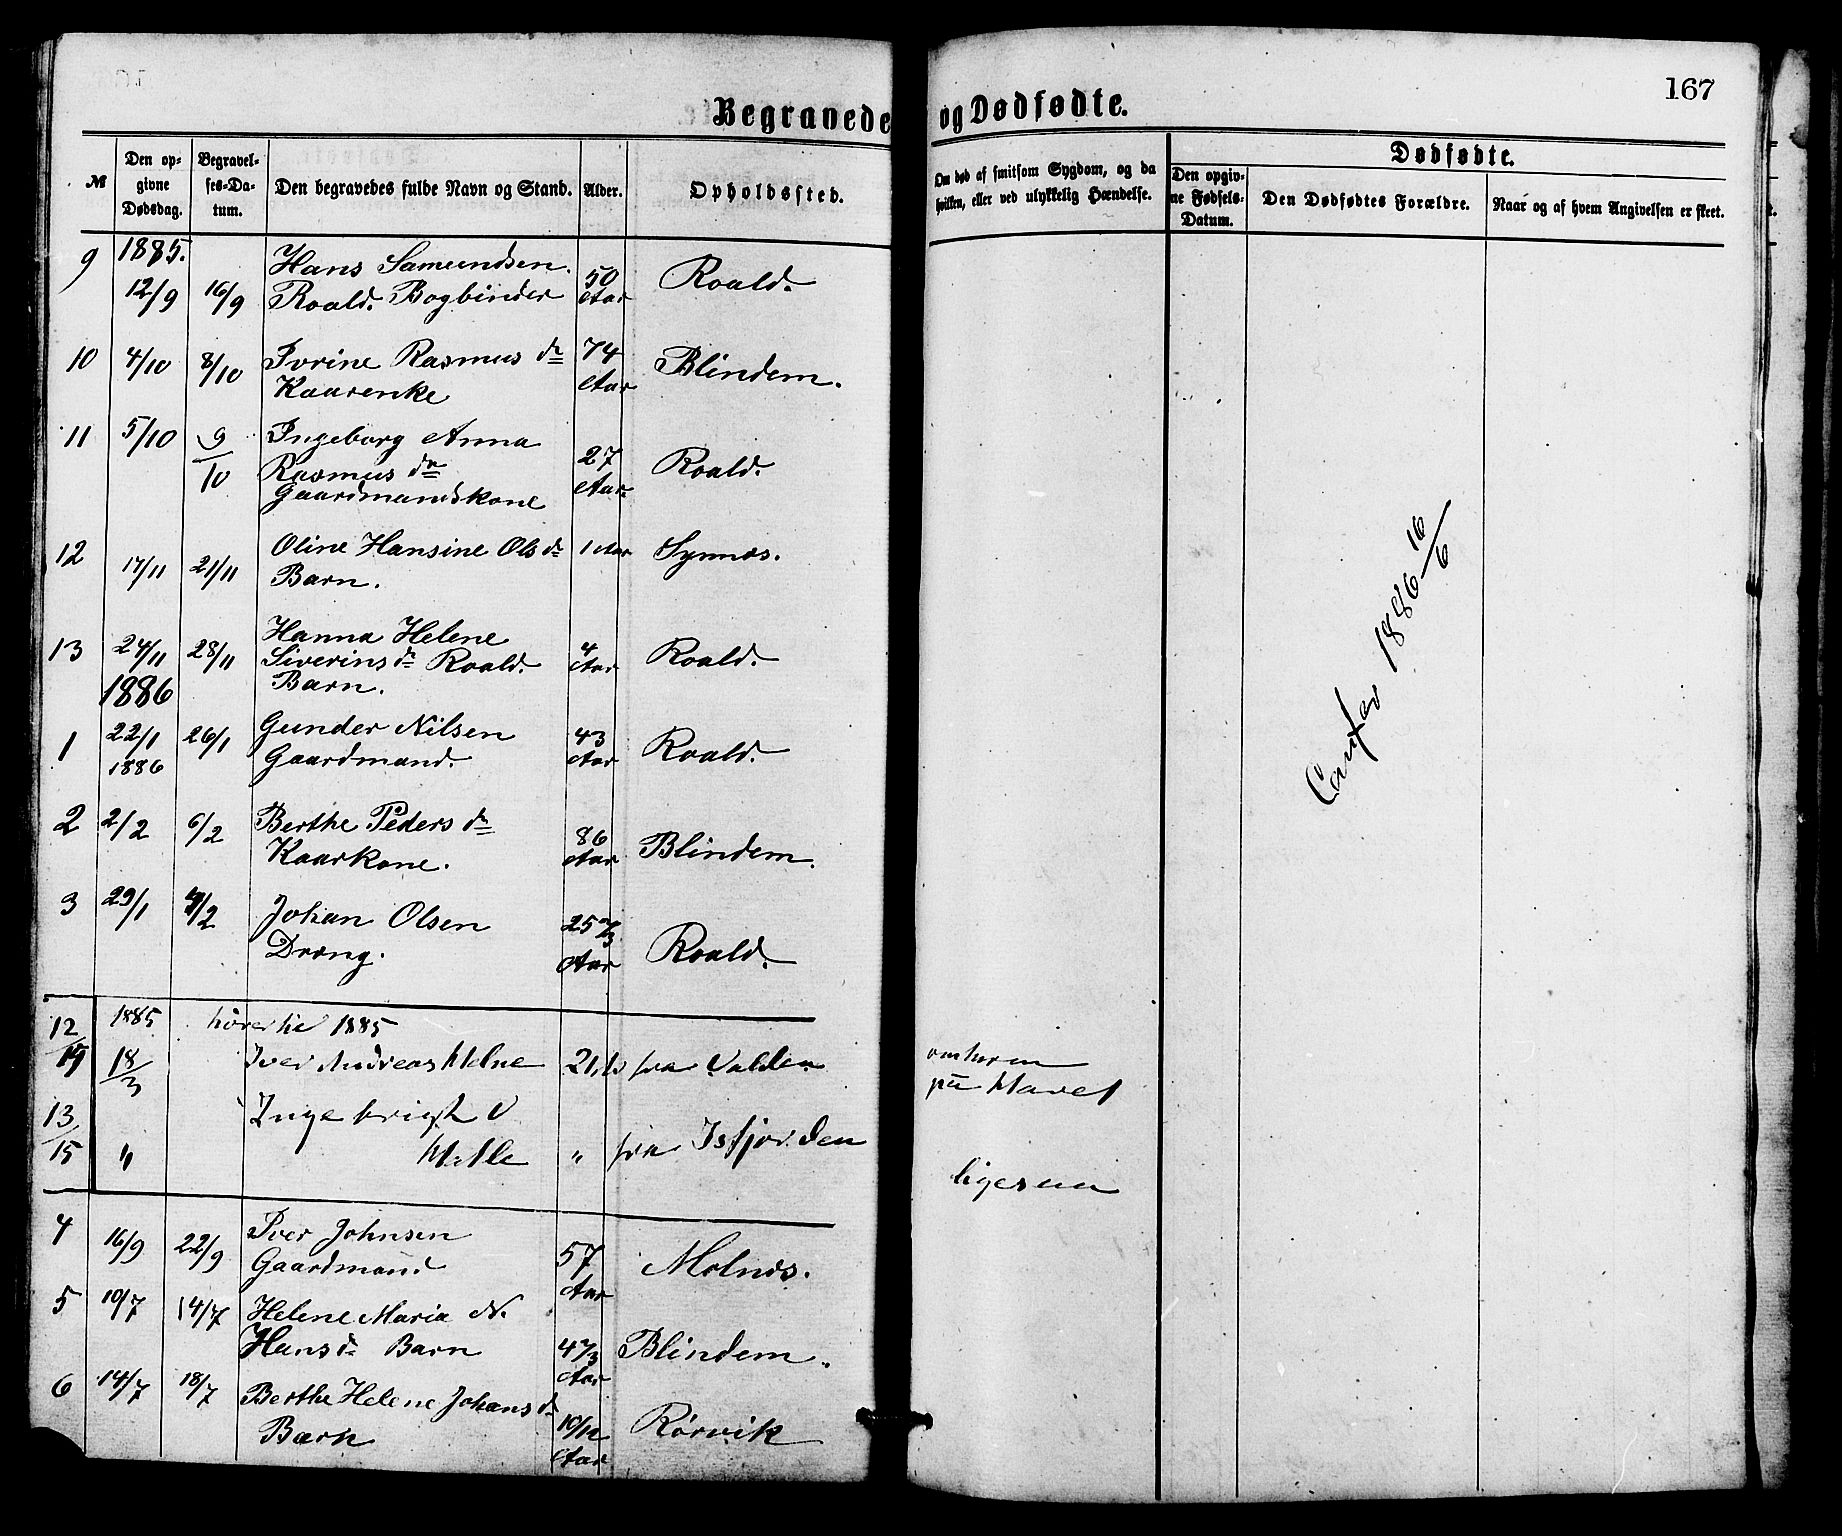 167
Begravede og Dødfødte.
№ Den opgivne Dødsdag. Begravelses-Datum. Den begravedes fulde Navn og Stand. Alder. Opholdssted. Om død af smitsom Sygdom, og da hvilken, eller ved ulykkelig Hændelse. Dødfødte. Den opgivne Fødsels-Datum. Den Dødfødtes Forældre. Naar og af hvem Angivelsen er skeet.
9 1885. Hans Samundsen. 50 Roald.
12/9 16/9 Roald. Bogbinder Aar
10 4/10 8/10 Ivrine Rasmus dr 74 Blindem.
Kaarenke Aar
11 5/10 9/10 Ingeborg Anna
Rasmus dr 27 Roald.
Gaardmandskone Aar
12 17/11 21/11 Oline Hansine Ols dr 1 Aar Synnæs.
Barn.
13 24/11 28/11 Hanna Helene
Siverins dr Roald. 4 Aar Roald.
1886 Barn.
1 22/1 26/1 Gunder Nilsen 43 Roald.
1886 Gaardmand. Aar
2 2/2 6/2 Berthe Peders dr 86 Blindem.
Kaarkone. Aar
3 29/1 /2 Johan Olsen 25 2/3 Roald.
Dræng. Aar
Confor 1886 16/6
12 1885 hører til 1885
18/3 Iver Andreas Helne 21 fra Valden omkom
paa Havet
13/15 " Ingebrigt O
Helle " fra Isfjorden ligesaa
4 16/9 22/9 Iver Johnsen 57 Molnes.
Gaardmand Aar
5 10/7 14/7 Helene Maria N.
Hans dr Barn 4 7/3 Aar Blindem.
6 14/7 18/7 Berthe Helene Johans dr 10/12 Rørvik
Barn Aar